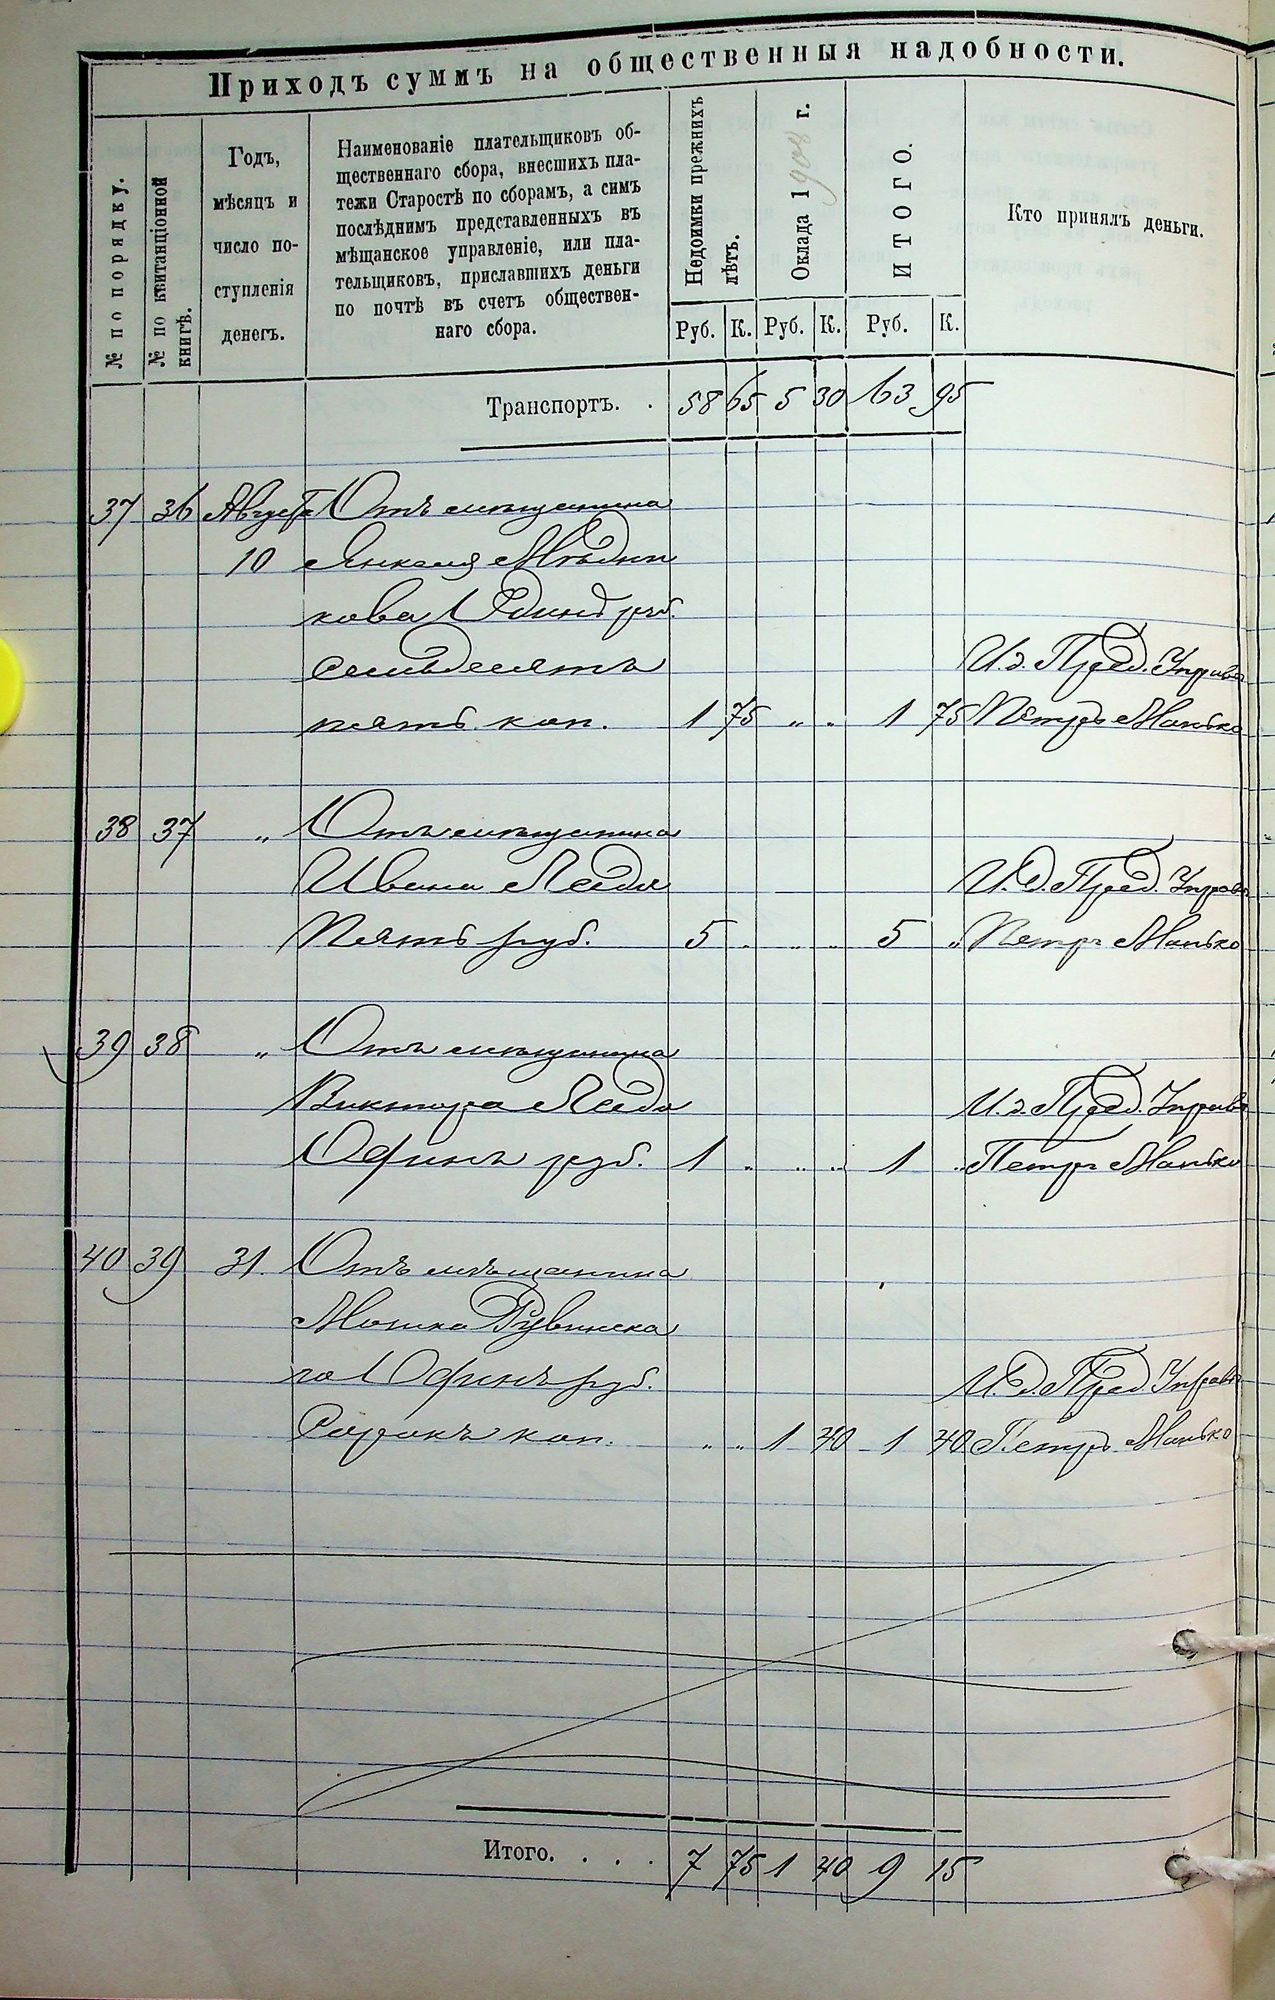 Приходъ суммъ на общественныя надобности.
№ по порядку.
№ по квитанціонной
книгѣ.
Годъ,
мѣсяцъ и
число по-
ступленія
денегъ.
Наименованіе плательщиковъ об-
щественнаго сбора, внесшихъ пла-
тежи Старостѣ по сборамъ, а симъ
послѣднимъ представленныхъ въ
мѣщанское управленіе, или пла-
тельщиковъ, приславшихъ деньги
по почтѣ въ счетъ обществен-
наго сбора.
Недоимки прежнихъ
лѣтъ.
Оклада 1908 г.
ИТОГО.
Кто принялъ деньги.
Руб. К. Руб. К. Руб. К.
Транспортъ. . 58 65 5 30 63 95
37 36 Августа Отъ мѣщанина
10 Янкеля Мѣдни
кова Одинъ руб.
семьдесятъ И.д. Пред. Управы
пять коп. 1 75 „ „ 1 75 Петръ Манько
38 37 „ Отъ мѣщанина
Ивана И.Д. Пред. Управы
Пять руб. 5 „ „ „ 5 „ Петръ Манько
39 38 „ Отъ мѣщанина
Виктора И.д. Пред. Управы
Одинъ руб. 1 „ „ „ 1 „ Петръ Манько
40 39 31. Отъ мѣщанина
Мошка Рувинска
го Одинъ руб. И.Д. Пред. Управы
Сорокъ коп. „ „ 1 40 1 40 Петръ Манько
Итого. . . . 7 75 1 40 9 15